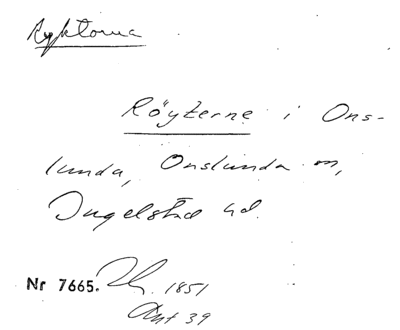 Ryktorna
Röyterne i Ons-
lunda, Onslunda sn,
Ingelstad hd.
Nr 7665. 1851
Ant 39